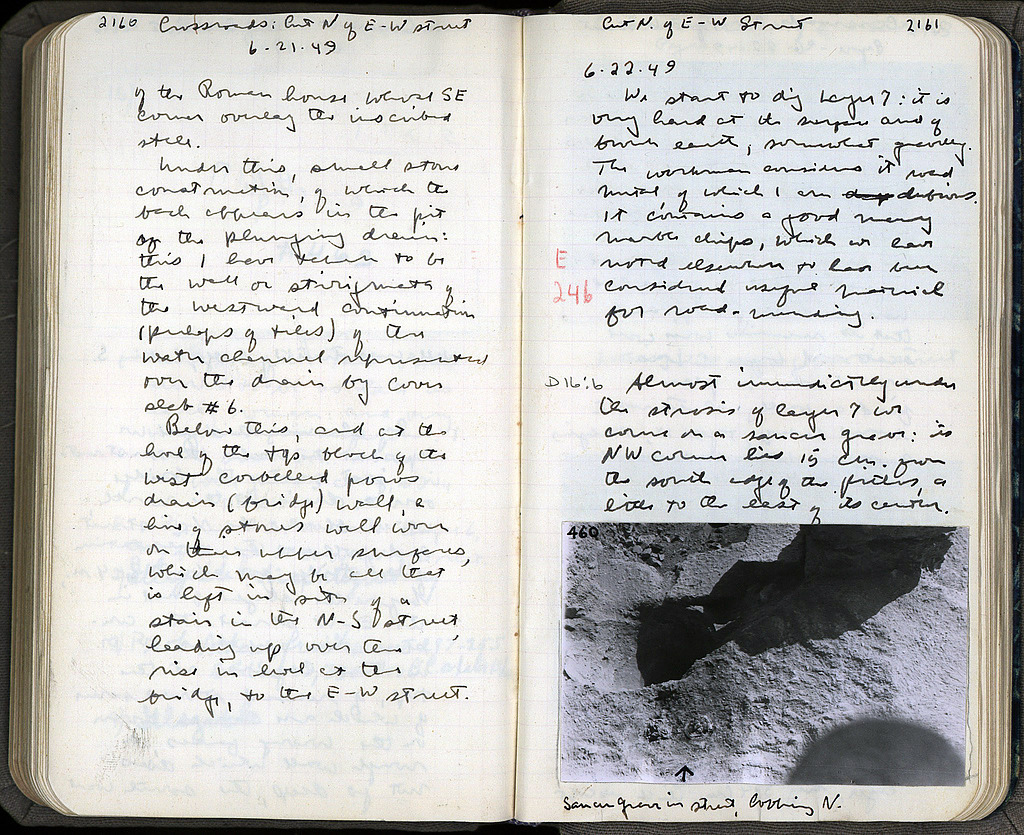 2160 Crossroads: Cut N of E-W street
6-21-49
of the Roman house whose SE
corner overlay the inscribed
stele.
Under this, small stone
construction, of which the
back appears in the pit
of the plunging drain:
this I have taken to be
the wall or strigmata of
the westward continuation
(perhaps of tiles) of the
water channel represented
over the drain by cover
slab #6.
Below this, and at the
level of the top block of the
west corbelled poros
drain (bridge) wall, a
line of stones well worn
on their upper surfaces,
which may be all that
is left in situ of a
stair in the N-S street,
leading up over the
rise in level at the
bridge, to the E-W street.
Cut N. of E-W Street 2161
6-22-49
We start to dig layer 7: it is
very hard at the surface and of
brown earth, somewhat gravelly.
The workman considers it road
metal of which I am dubious.
It contains a good many
marble chips, which we have
noted elsewhere to have been
considered useful material
for road-mending.
E
246
D16:6 Almost immediately under
the strosis of layer 7 we
come on a saucer grave: its
NW corner lies 15 cm. from
the south edge of the pithos, a
little to the east of its center.
460
Saucer grave in street, looking N.